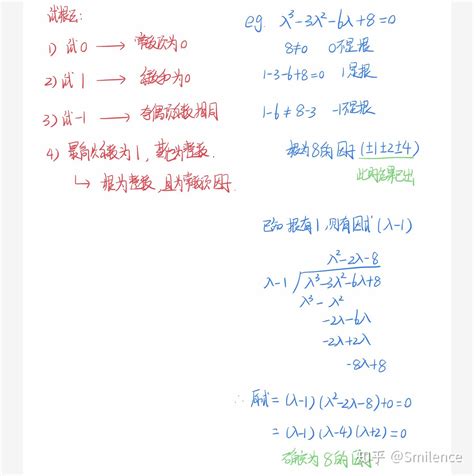 试根法:
1) 试0 → 常数项为0
2) 试1 → 系数和为0
3) 试-1 → 奇偶项系数和相同
4) 最高次系数为1, 其它为整数.
↳ 根为整数, 且为常数项因子.
eg. λ³-3λ²-6λ+8=0
8≠0 0不是根
1-3-6+8=0 1是根
1-6≠8-3 -1不是根
根为8的因子(±1±2±4)
此时结果已出
已知根有1,则有因式(λ-1)
λ²-2λ-8
λ-1 λ³-3λ²-6λ+8
λ³-λ²
-2λ-6λ
-2λ+2λ
-8λ+8
∴ 原式=(λ-1)(λ²-2λ-8)+0=0
=(λ-1)(λ-4)(λ+2)=0
确实为8的因子
知乎 @Smilence